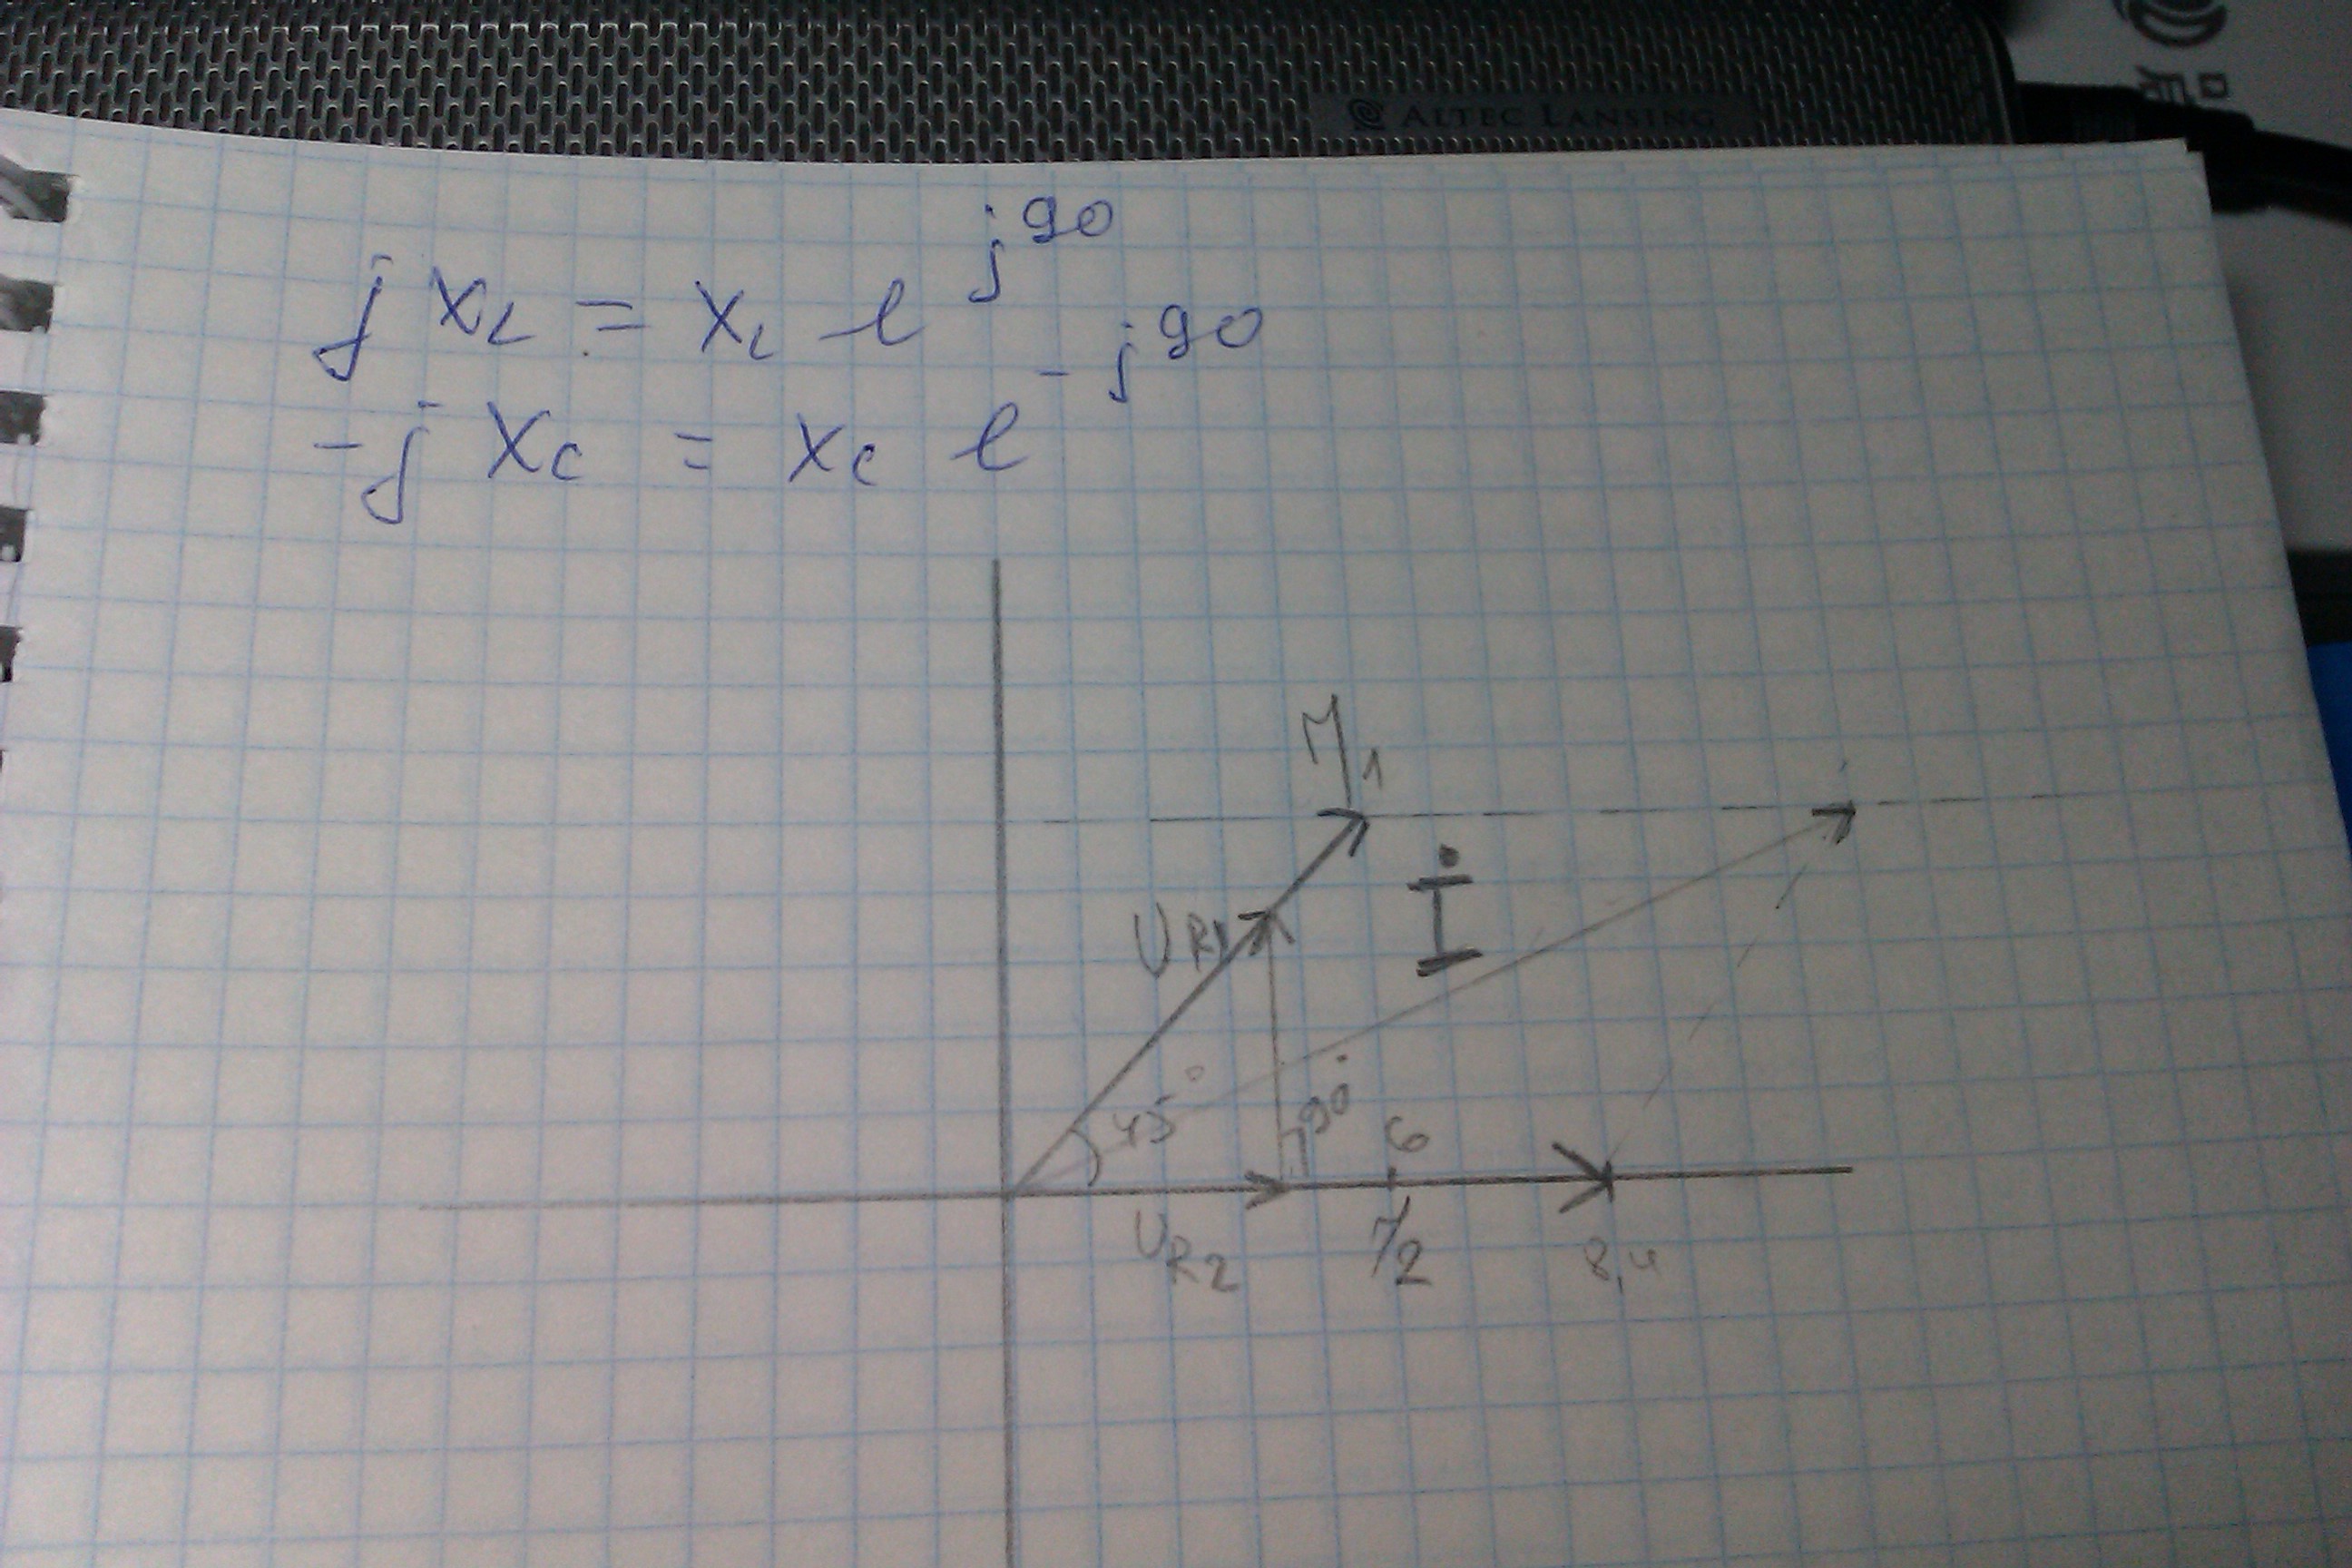 ALTEC LANSING
j X_L = X_L e^{j90}
-j X_C = X_C e^{-j90}
I
U_{R1}
45°
90°
6
U_{R2}
8,4